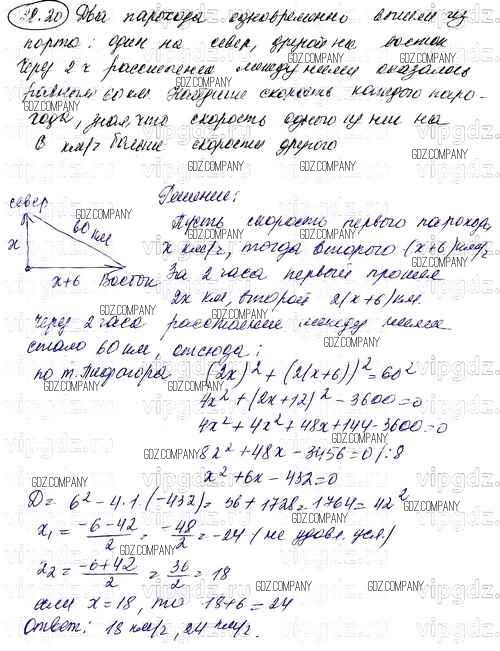 29.20 Два парохода одновременно вышли из
порта: один на север, другой на восток
Через 2 ч расстояние между ними оказалось
равным 60 км Найдите скорость каждого паро-
хода, зная, что скорость одного из них на
6 км/ч больше скорости другого
Решение:
север
60 км
x
x+6 Восток
Пусть скорость первого парохода
x км/ч, тогда второго (x+6) км/ч
За 2 часа первый прошел
2x км, второй 2(x+6) км
Через 2 часа расстояние между ними
стало 60 км, отсюда:
по т. Пифагора (2x)² + (2(x+6))² = 60²
4x² + (2x+12)² - 3600 = 0
4x² + 4x² + 48x + 144 - 3600 = 0
8x² + 48x - 3456 = 0 /:8
x² + 6x - 432 = 0
D = 6² - 4·1·(-432) = 36 + 1728 = 1764 = 42²
x₁ = -6-42/2 = -48/2 = -24 (не удовл. усл.)
x₂ = -6+42/2 = 36/2 = 18
если x=18, то 18+6=24
Ответ: 18 км/ч, 24 км/ч.
GDZ.COMPANY
vipgdz.ru